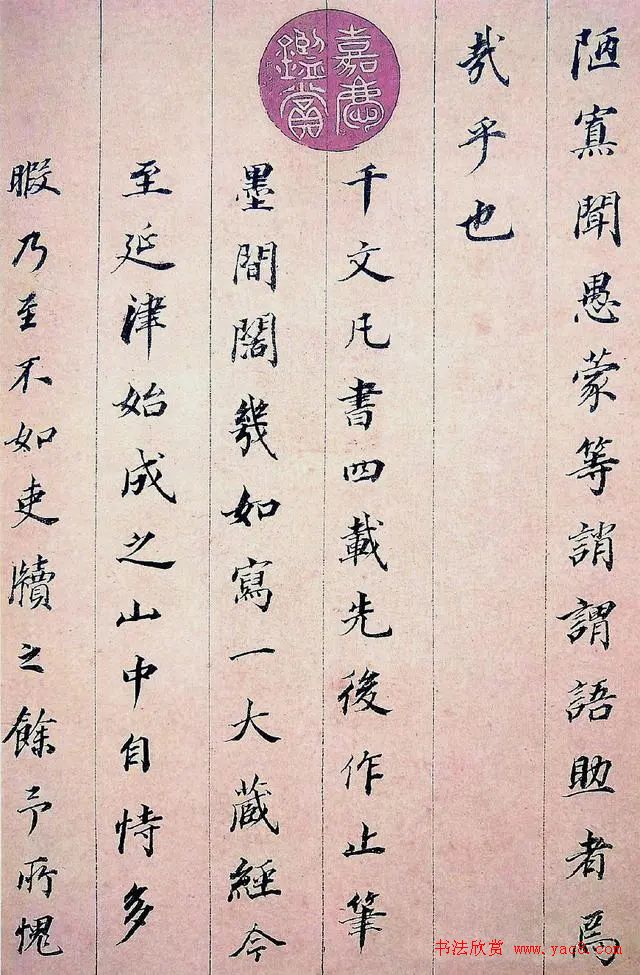 陋寡聞愚蒙等誚謂語助者焉
哉乎也
千文凡書四載先後作止筆
墨間闊幾如寫一大藏經今
至延津始成之山中自恃多
暇乃至不如吏牘之餘予所愧
嘉慶鑑賞
书法欣赏 www.yac8.com